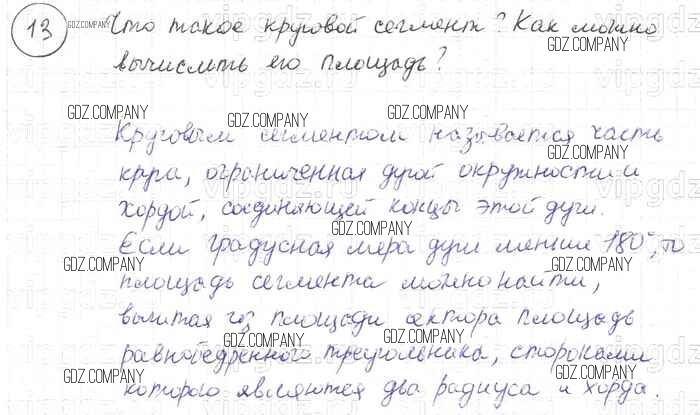 13 Что такое круговой сегмент? Как можно
вычислить его площадь?
Круговым сегментом называется часть
круга, ограниченная дугой окружности и
хордой, соединяющей концы этой дуги.
Если градусная мера дуги меньше 180°, то
площадь сегмента можно найти,
вычитая из площади сектора площадь
равнобедренного треугольника, сторонами
которого являются два радиуса и хорда.
GDZ.COMPANY
GDZ.COMPANY
GDZ.COMPANY
GDZ.COMPANY
GDZ.COMPANY
GDZ.COMPANY
GDZ.COMPANY
GDZ.COMPANY
GDZ.COMPANY
GDZ.COMPANY
GDZ.COMPANY
GDZ.COMPANY
GDZ.COMPANY